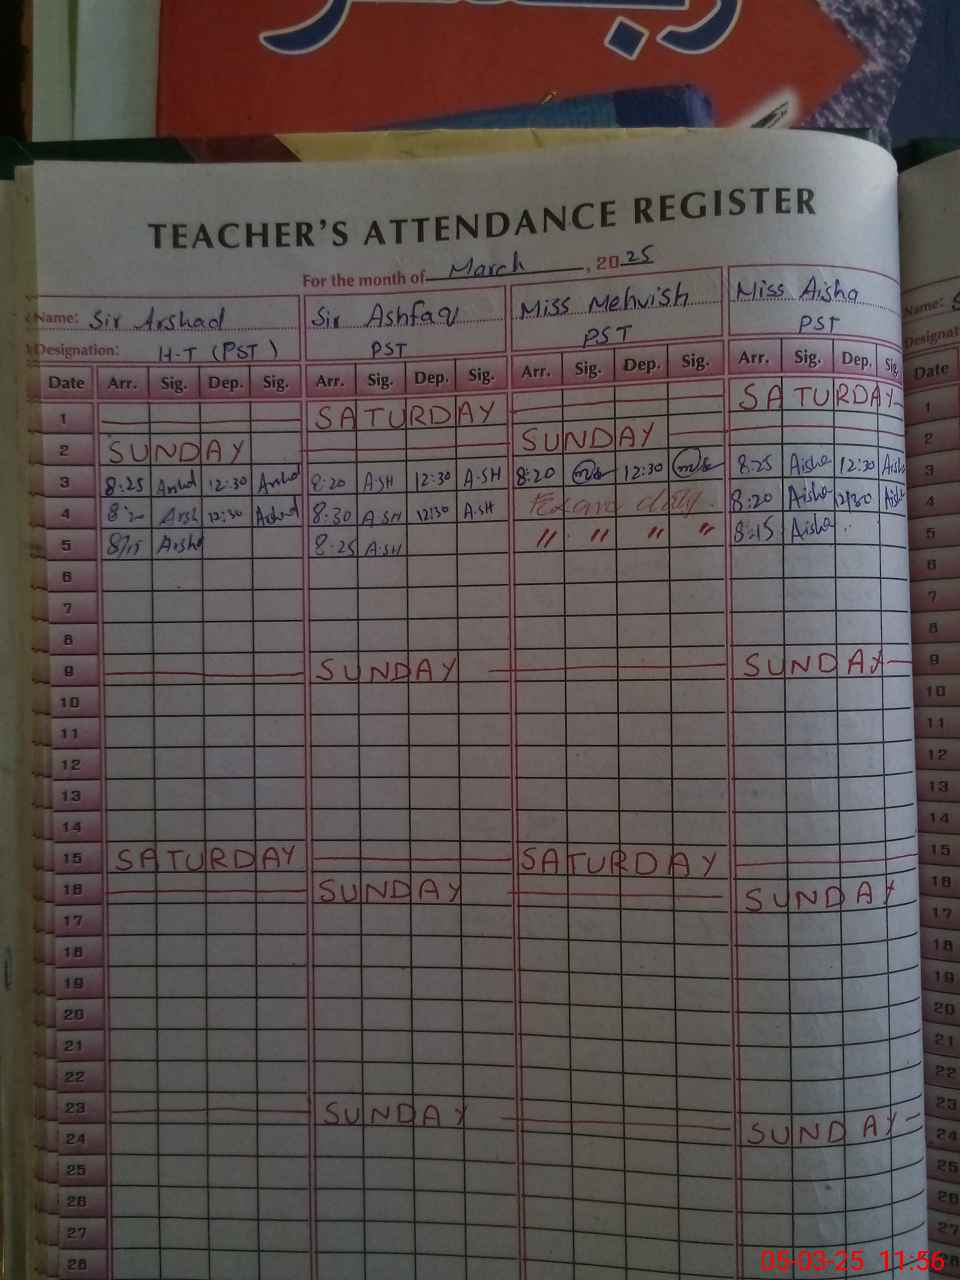 TEACHER'S ATTENDANCE REGISTER
For the month of March, 2025
Name: Sir Arshad Sir Ashfaq Miss Mehvish Miss Aisha Name: S
Designation: H-T (PST) PST PST PST Designat
Date Arr. Sig. Dep. Sig. Arr. Sig. Dep. Sig. Arr. Sig. Dep. Sig. Arr. Sig. Dep. Sig. Date
1 SATURDAY SATURDAY 1
2 SUNDAY SUNDAY 2
3 8:25 Arshad 12:30 Arshad 8:20 A.SH 12:30 A.SH 8:20 12:30 8:25 Aisha 12:30 Aisha 3
4 Arsh 12:30 Arshad 8:30 A.SH 12:30 A.SH Exam duty. 8:20 Aisha 12:30 Aisha 4
5 8:15 Arshad 8:25 A.SH " " " " 8:15 Aisha 5
6 6
7 7
8 8
9 SUNDAY SUNDAY 9
10 10
11 11
12 12
13 13
14 14
15 SATURDAY SATURDAY 15
16 SUNDAY SUNDAY 16
17 17
18 18
19 19
20 20
21 21
22 22
23 SUNDAY SUNDAY 23
24 24
25 25
26 26
27 27
28
05-03-25 11:56